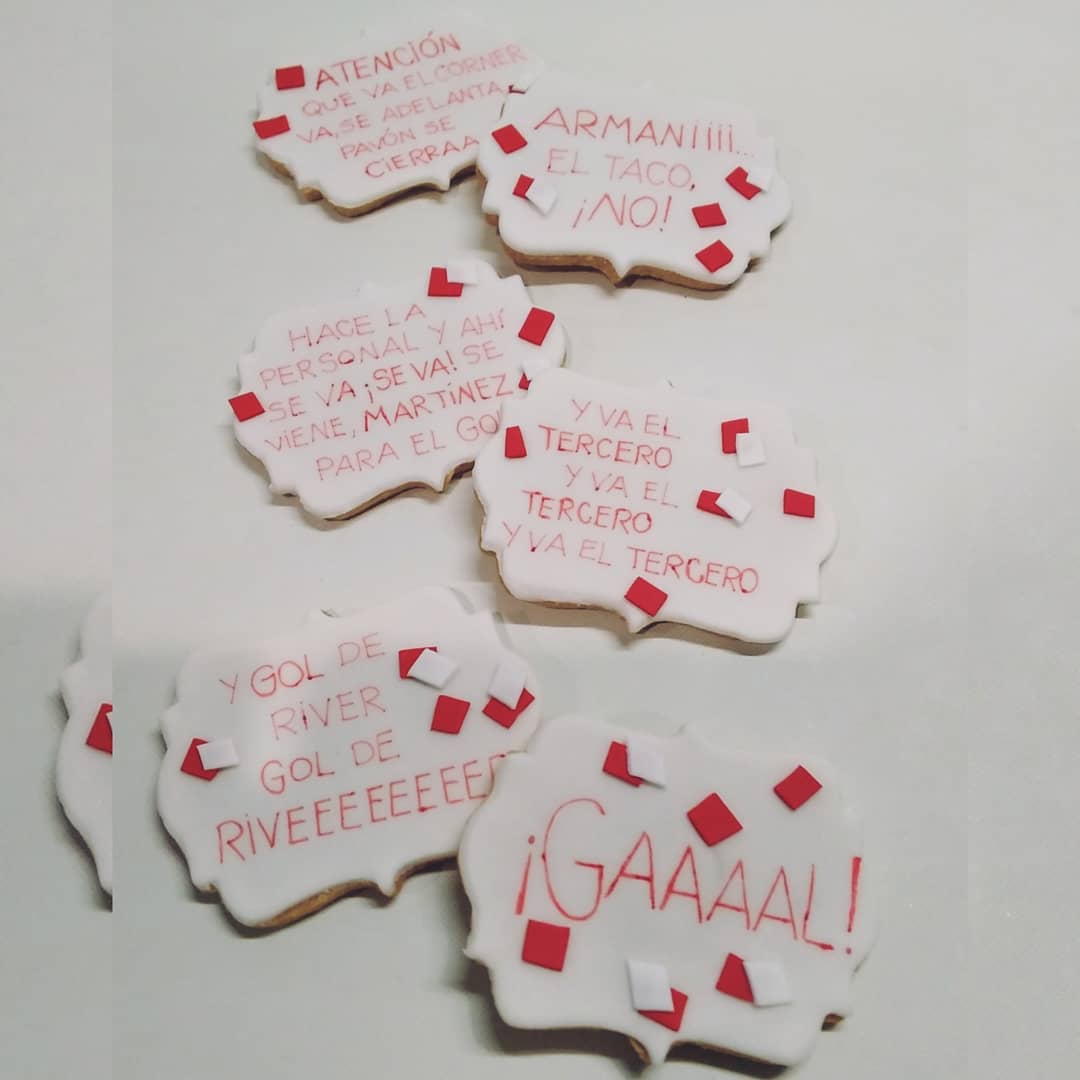 ATENCIÓN
QUE VA EL CORNER
VA, SE ADELANTA,
PAVÓN SE
CIERRAA
ARMANIIII...
EL TACO,
¡NO!
HACE LA
PERSONAL Y AHÍ
SE VA ¡SE VA! SE
VIENE, MARTÍNEZ
PARA EL GOL
Y VA EL
TERCERO
Y VA EL
TERCERO
Y VA EL TERCERO
Y GOL DE
RIVER
GOL DE
RIVEEEEEEEER
¡GAAAAL!